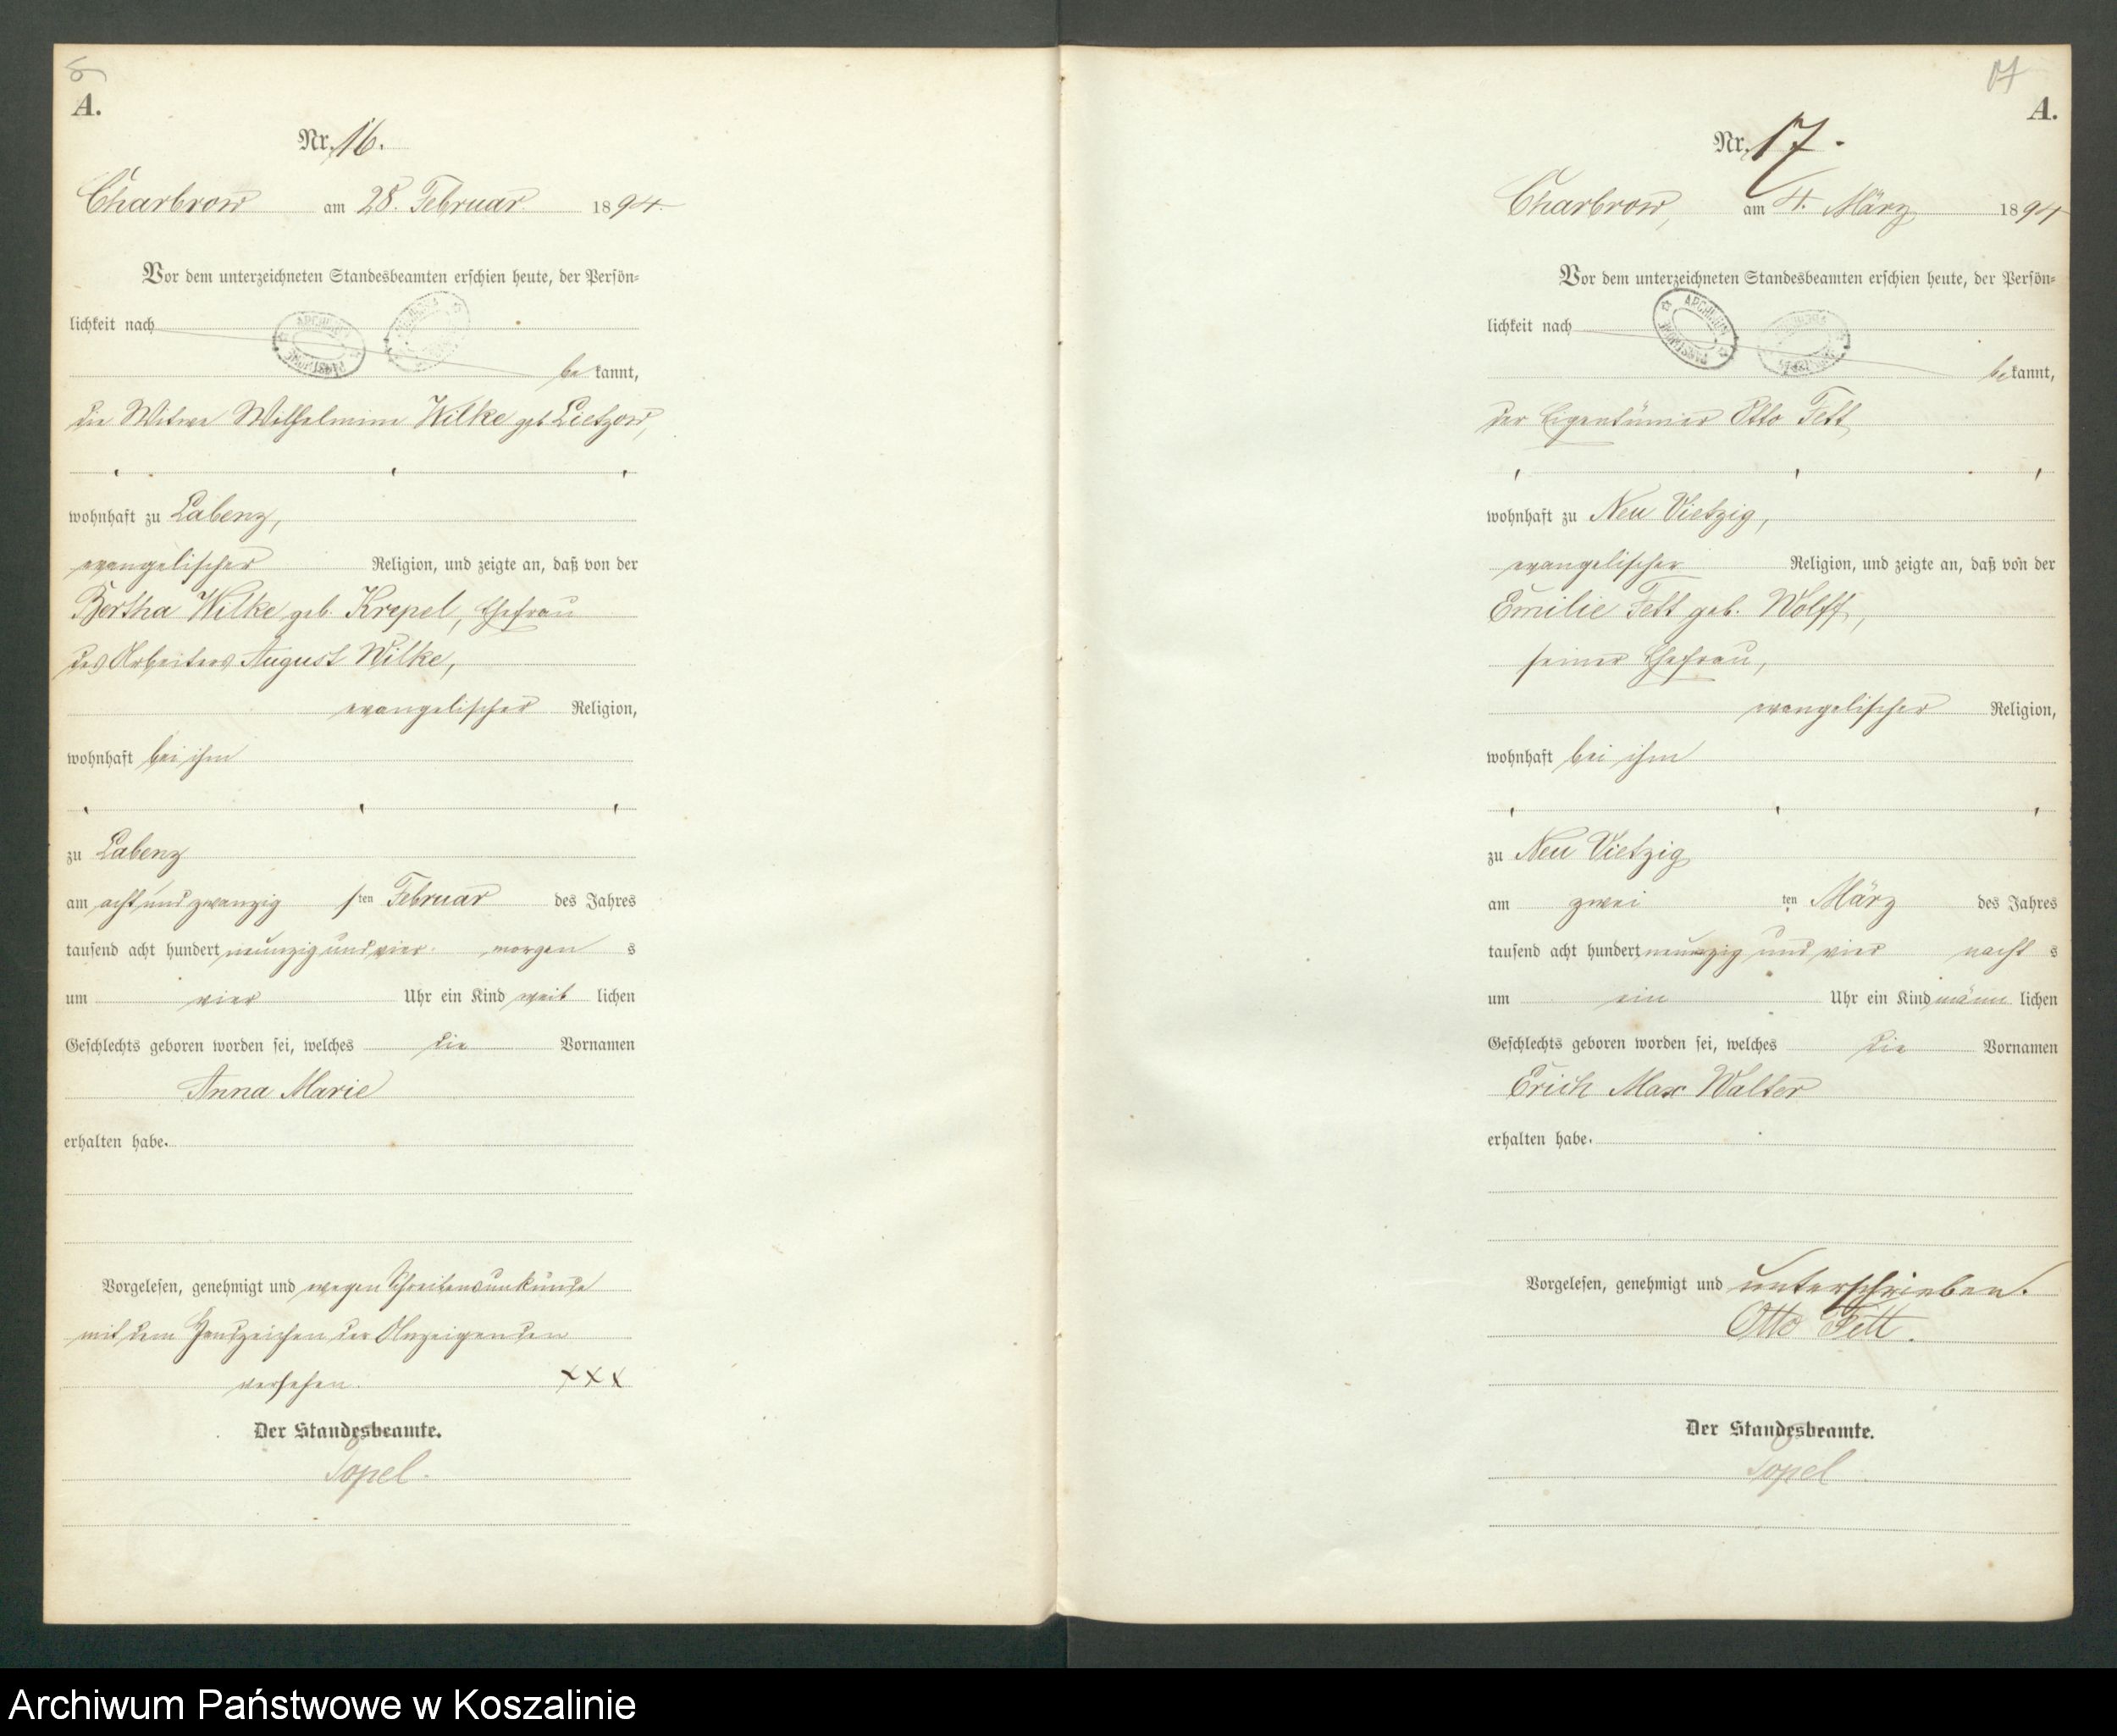 8
A.
Nr. 16.
Charbrow am 28. Februar 1894.
Vor dem unterzeichneten Standesbeamten erschien heute, der Persön-
lichkeit nach
bekannt,
die Witwe Wilhelmine Wilke geb. Lietzow,
wohnhaft zu Labenz,
evangelischer Religion, und zeigte an, daß von der
Bertha Wilke geb. Krepel, Ehefrau
des Arbeiters August Wilke,
evangelischer Religion,
wohnhaft bei ihm
zu Labenz
am acht und zwanzigsten Februar des Jahres
tausend acht hundert neunzig und vier morgens
um vier Uhr ein Kind weiblichen
Geschlechts geboren worden sei, welches die Vornamen
Anna Marie
erhalten habe.
Vorgelesen, genehmigt und wegen Schreibensunkunde
mit dem Handzeichen der Anzeigenden
versehen. XXX
Der Standesbeamte.
Popel.
17
A.
Nr. 17.
Charbrow, am 4. März 1894
Vor dem unterzeichneten Standesbeamten erschien heute, der Persön-
lichkeit nach
ARCHIWUM PAŃSTWOWE
bekannt,
der Eigentümer Otto Fett
wohnhaft zu Neu Vietzig,
evangelischer Religion, und zeigte an, daß von der
Emilie Fett geb. Wolff,
seiner Ehefrau,
evangelischer Religion,
wohnhaft bei ihm
zu Neu Vietzig
am zweiten März des Jahres
tausend acht hundert neunzig und vier nachts
um ein Uhr ein Kind männlichen
Geschlechts geboren worden sei, welches die Vornamen
Erich Max Walter
erhalten habe.
Vorgelesen, genehmigt und unterschrieben.
Otto Fett.
Der Standesbeamte.
Popel.
Archiwum Państwowe w Koszalinie